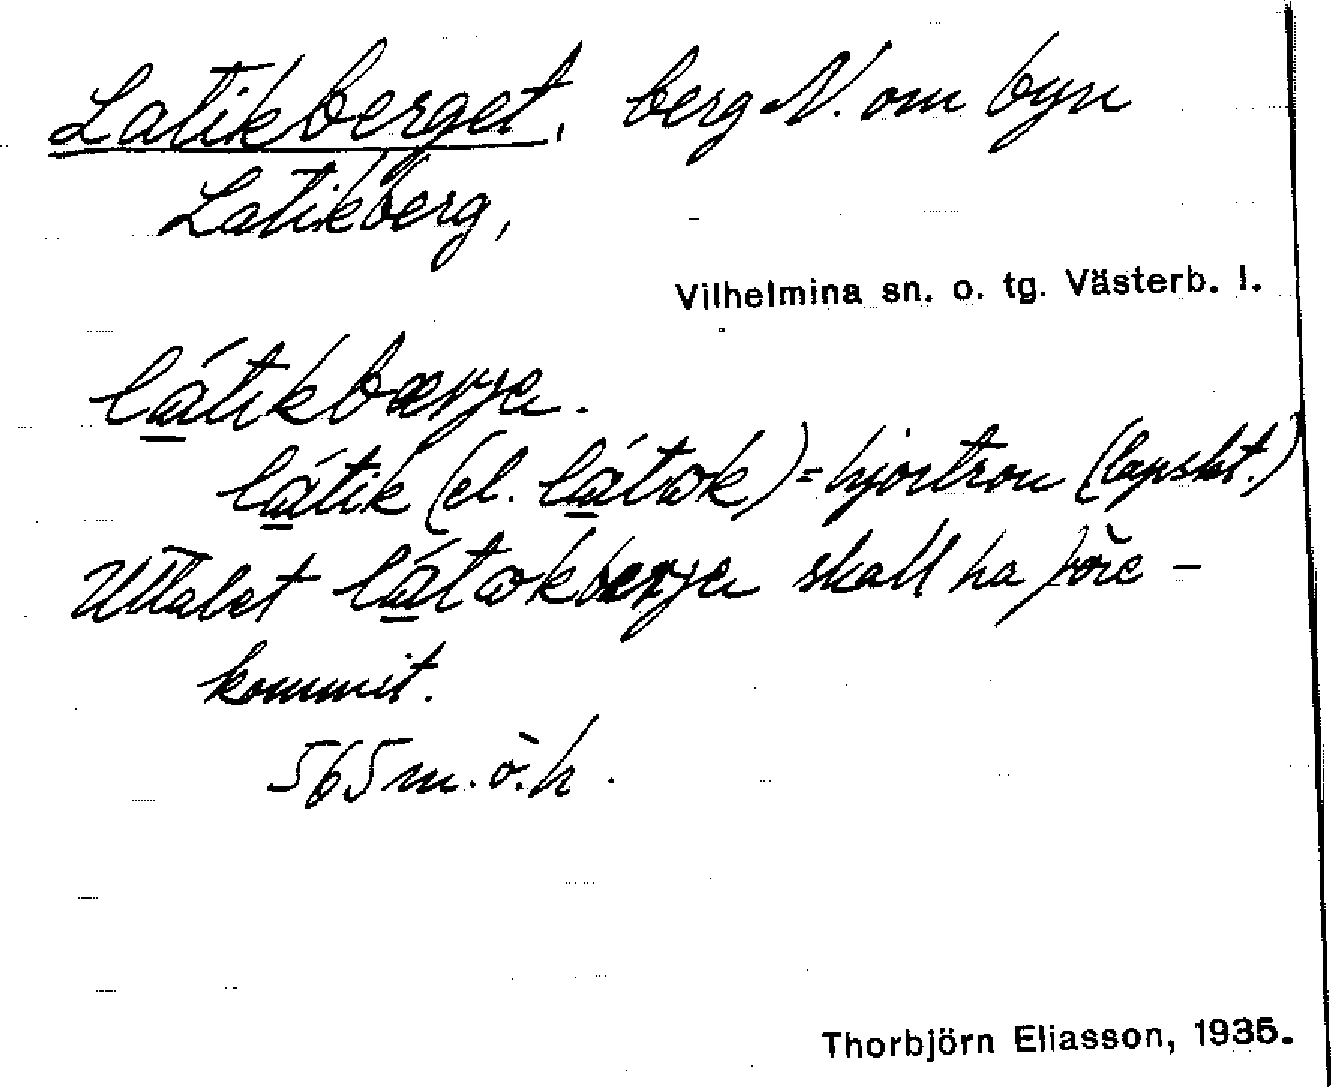 Latikberget, berg N. om byn
Latikberg,
Vilhelmina sn. o. tg. Västerb. l.
lá̲tikbærjɐ.
lá̲tik (el. lá̲tɷk) = hjortron (lapskt.)
Uttalet lá̲tɷkbærjɐ skall ha före-
kommit.
565 m. ö. h.
Thorbjörn Eliasson, 1935.